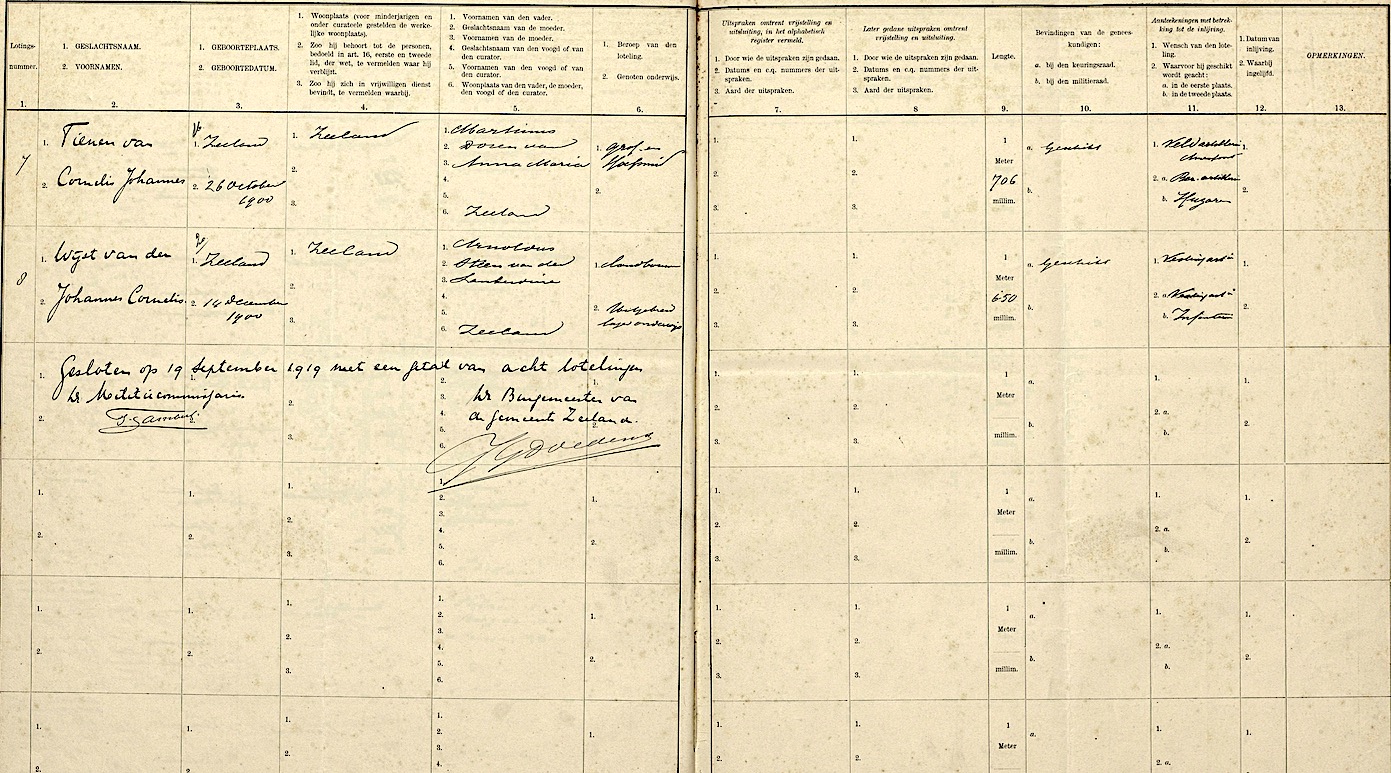 Lotings-
nummer.
1.
1. GESLACHTSNAAM.
2. VOORNAMEN.
2.
1. GEBOORTEPLAATS.
2. GEBOORTEDATUM.
3.
1. Woonplaats (voor minderjarigen en
onder curateele gestelden de werke-
lijke woonplaats).
2. Zoo hij behoort tot de personen,
bedoeld in art. 16, eerste en tweede
lid, der wet, te vermelden waar hij
verblijft.
3. Zoo hij zich in vrijwilligen dienst
bevindt, te vermelden waarbij.
4.
1. Voornamen van den vader.
2. Geslachtsnaam van de moeder.
3. Voornamen van de moeder.
4. Geslachtsnaam van den voogd of van
den curator.
5. Voornamen van den voogd of van
den curator.
6. Woonplaats van den vader, de moeder,
den voogd of den curator.
5.
1. Beroep van den
loteling.
2. Genoten onderwijs.
6.
Uitspraken omtrent vrijstelling en
uitsluiting, in het alphabetisch
register vermeld.
1. Door wie de uitspraken zijn gedaan.
2. Datums en c.q. nummers der uit-
spraken.
3. Aard der uitspraken.
7.
Later gedane uitspraken omtrent
vrijstelling en uitsluiting.
1. Door wie de uitspraken zijn gedaan.
2. Datums en c.q. nummers der uit-
spraken.
3. Aard der uitspraken.
8.
Lengte.
9.
Bevindingen van de genees-
kundigen:
a. bij den keuringsraad.
b. bij den militieraad.
10.
Aanteekeningen met betrek-
king tot de inlijving.
1. Wensch van den lote-
ling.
2. Waarvoor hij geschikt
wordt geacht:
a. in de eerste plaats.
b. in de tweede plaats.
11.
1. Datum van
inlijving.
2. Waarbij
ingelijfd.
12.
OPMERKINGEN.
13.
7
1. Tienen van
2. Cornelis Johannes
1. Zeeland
2. 26 October
1900
1. Zeeland
2.
3.
1. Martinus
2. Doren van
3. Anna Maria
4.
5.
6. Zeeland
1. Grof en
Hoefsmid
2.
1.
2.
3.
1.
2.
3.
1
Meter
706
millim.
a. Geschikt
b.
1. Veldartillerie
Amersfoort
2. a. Ber. artillerie
b. Huzaren
1.
2.
8
1. Wijst van der
2. Johannes Cornelis
1. Zeeland
2. 14 December
1900
1. Zeeland
2.
3.
1. Arnoldus
2. van der
3.
4.
5.
6. Zeeland
1. Landbouwer
2. Uitgebreid
lager onderwijs
1.
2.
3.
1.
2.
3.
1
Meter
650
millim.
a. Geschikt
b.
1. Vestingart
2. a. Vestingart
b. Infanterie
1.
2.
Gesloten op 19 September 1919 met een getal van acht lotelingen
De Militiecommissaris
De Burgemeester van
de gemeente Zeeland.
1.
2.
1.
2.
2.
3.
2.
3.
4.
5.
6.
1.
2.
1.
2.
3.
1.
2.
3.
1
Meter
millim.
a.
b.
1.
2. a.
b.
1.
2.
1.
2.
1.
2.
1.
2.
3.
1.
2.
3.
4.
5.
6.
1.
2.
1.
2.
3.
1.
2.
3.
1
Meter
millim.
a.
b.
1.
2. a.
b.
1.
2.
1.
2.
1.
2.
1.
2.
3.
1.
2.
3.
4.
5.
6.
1.
2.
1.
2.
3.
1.
2.
3.
1
Meter
millim.
a.
b.
1.
2. a.
b.
1.
2.
1.
2.
1.
2.
1.
2.
1.
2.
3.
4.
1.
1.
2.
1.
2.
1
Meter
a.
1.
2. a.
1.